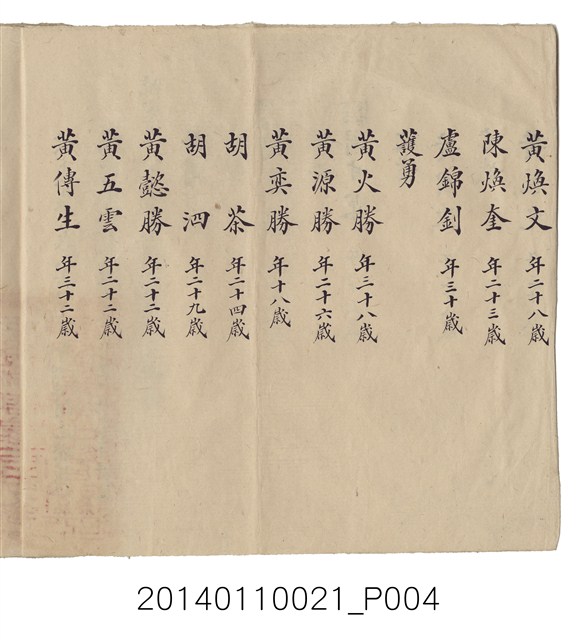 黃煥文年二十八歲
陳煥奎年二十三歲
盧錦釗年三十歲
護勇
黃火勝年三十八歲
黃源勝年二十六歲
黃奕勝年十八歲
胡茶年二十四歲
胡泗年二十九歲
黃懿勝年二十二歲
黃五雲年二十二歲
黃傳生年三十二歲
20140110021_P004